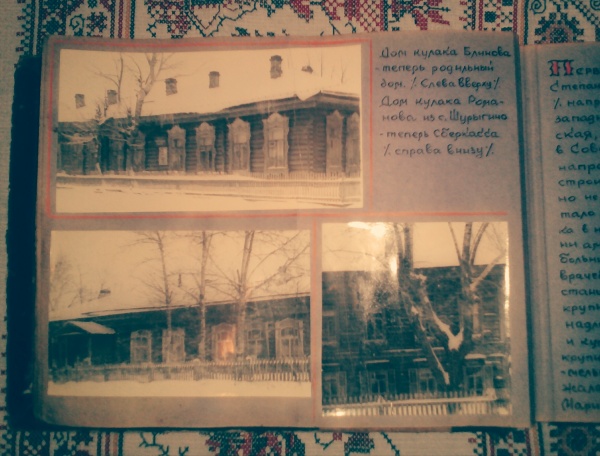 Дом кулака Блинова
- теперь родильный
дом. /. Слева вверху /.
Дом кулака Рома-
нова из с. Шурыгино
- теперь сберкасса
/. справа внизу /.
Степан
/. напр
запад
ская,
в Сов
напра
строи
но не
тало
ка в н
ни ар
больни
врачей
стан
крупн
надл
и ку
крупи
-тель
жале
/Мари